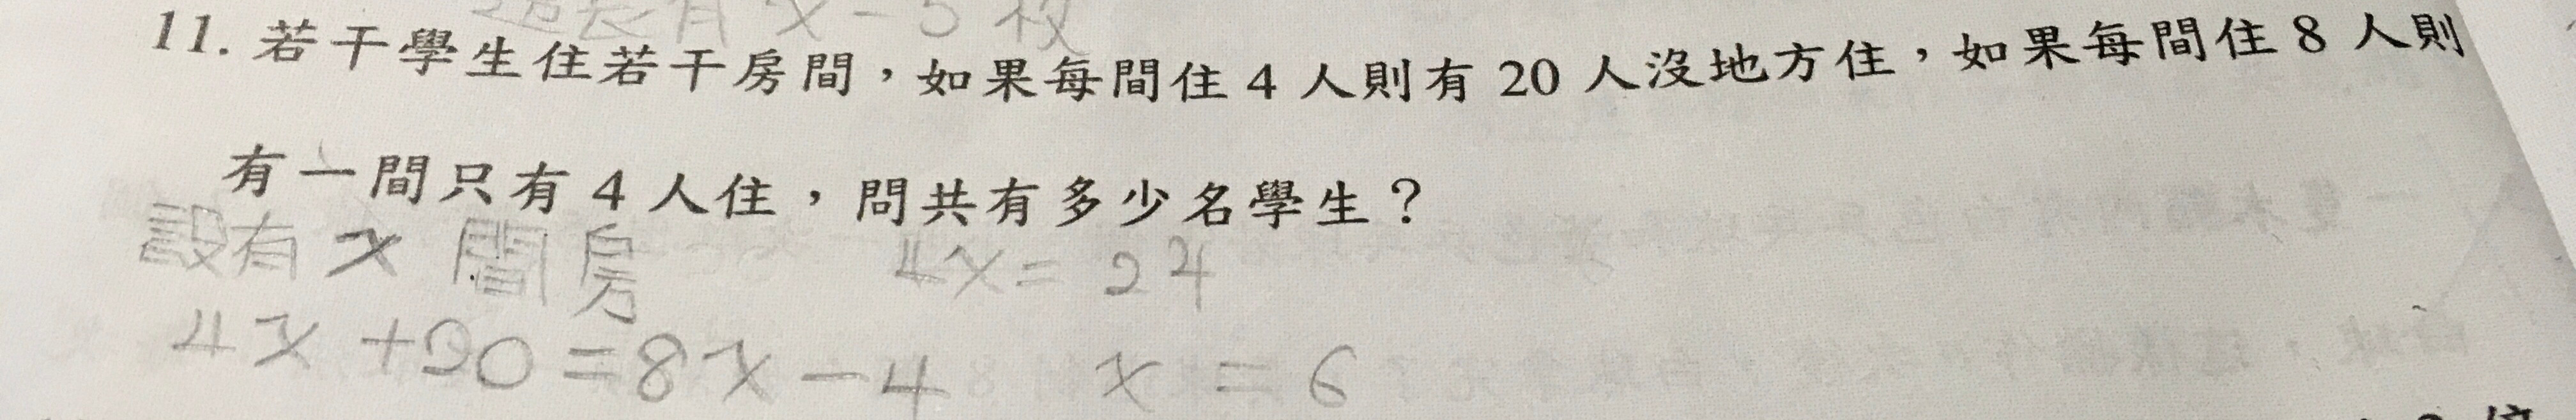 題長有 x-5 枚
11. 若干學生住若干房間,如果每間住 4 人則有 20 人沒地方住,如果每間住 8 人則
有一間只有 4 人住,問共有多少名學生?
設有 x 間房
4x = 24
4x +20 = 8x - 4
x = 6